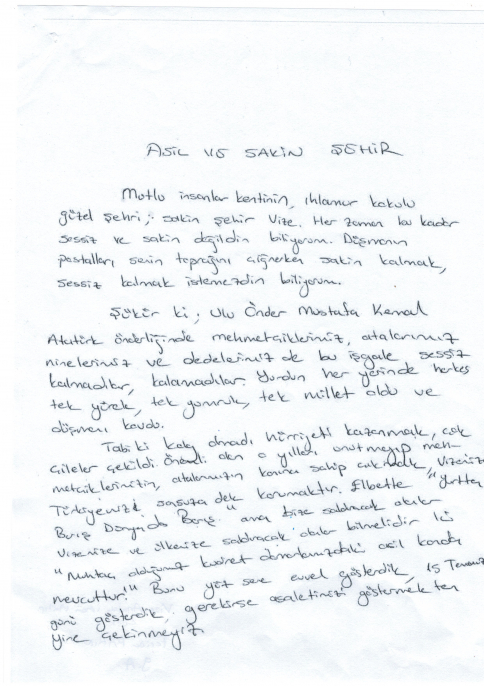 ASİL VE SAKİN ŞEHİR
Mutlu insanlar kentinin, ıhlamur kokulu
güzel şehri; sakin şehir Vize. Her zaman bu kadar
sessiz ve sakin değildin biliyorum. Düşmanın
postalları senin toprağını çiğnerken sakin kalmak,
sessiz kalmak istemezdin biliyorum.
Şükür ki; Ulu Önder Mustafa Kemal
Atatürk önderliğinde mehmetçiklerimiz, atalarımız
ninelerimiz ve dedelerimiz de bu işgale sessiz
kalmadılar, kalamadılar. Yurdun her yerinde herkes
tek yürek, tek yumruk, tek millet oldu ve
düşmanı kovdu.
Tabi ki kolay olmadı hürriyeti kazanmak, çok
çileler çekildi. Önemli olan o yılları unutmayıp meh-
metçiklerimizin, atalarımızın kanına sahip çıkmak, Vizemizi
Türkiyemizi sonsuza dek korumaktır. Elbette "Yurtta
Barış Dünyada Barış." ama bize saldıracak olanlar
Vizemize ve ülkemize saldıracak olanlar bilmelidir ki
"Muhtaç olduğumuz kudret damarlarımızdaki asil kanda
mevcuttur!" Bunu yüz sene evvel gösterdik, 15 Temmuz
günü gösterdik, gerekirse asaletimizi göstermekten
yine çekinmeyiz.